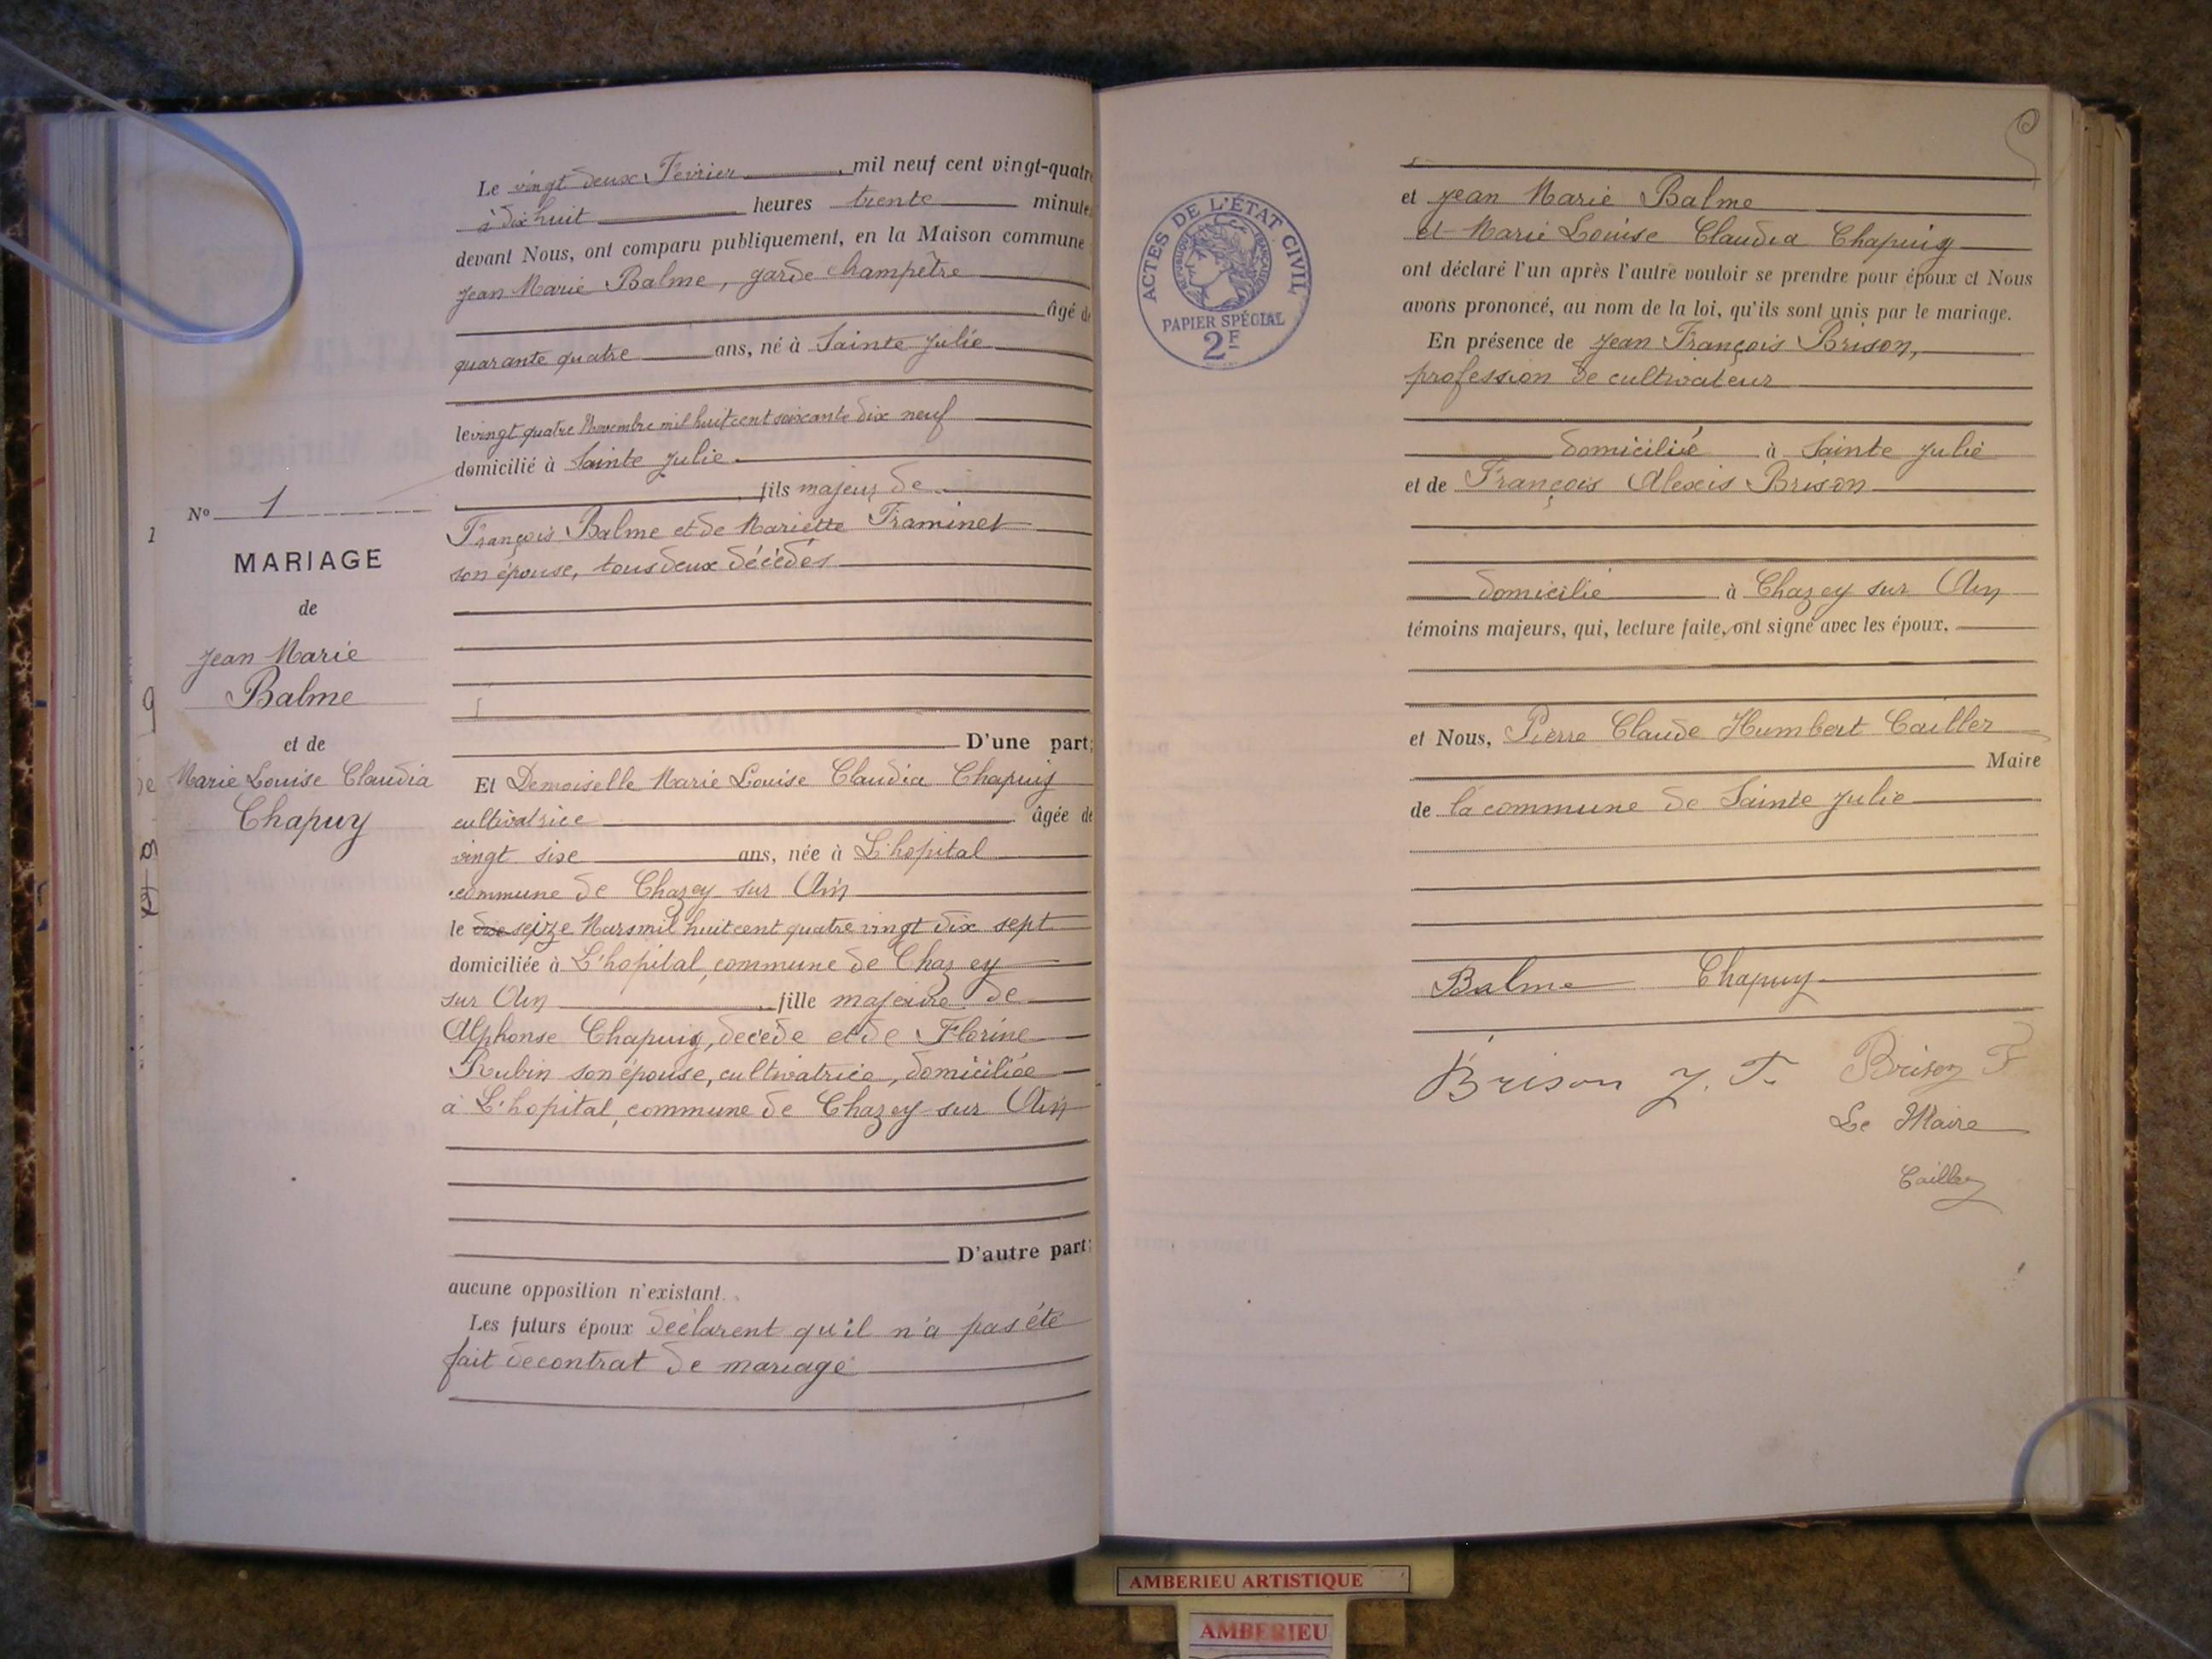 Le vingt deux Février mil neuf cent vingt-quatre
à dix huit heures trente minutes
devant Nous, ont comparu publiquement, en la Maison commune
Jean Marie Balme, garde champêtre
âgé de
quarante quatre ans, né à Sainte Julie
le vingt quatre Novembre mil huit cent soixante dix neuf
domicilié à Sainte Julie
fils majeur de
François Balme et de Mariette Framinet
son épouse, tous deux décédés
D'une part;
Et Demoiselle Marie Louise Claudia Chapuy
cultivatrice âgée de
vingt six ans, née à L'hopital
commune de Chazey sur Ain
le dix seize Mars mil huit cent quatre vingt dix sept
domiciliée à L'hopital, commune de Chazey
sur Ain fille majeure de
Alphonse Chapuy, décédé et de Florine
Rubin son épouse, cultivatrice, domiciliée
à L'hopital, commune de Chazey sur Ain
D'autre part;
aucune opposition n'existant.
Les futurs époux déclarent qu'il n'a pas été
fait de contrat de mariage
No 1
MARIAGE
de
Jean Marie
Balme
et de
Marie Louise Claudia
Chapuy
ACTES DE L'ÉTAT CIVIL
RÉPUBLIQUE FRANÇAISE
PAPIER SPÉCIAL
2F
et Jean Marie Balme
et Marie Louise Claudia Chapuy
ont déclaré l'un après l'autre vouloir se prendre pour époux et Nous
avons prononcé, au nom de la loi, qu'ils sont unis par le mariage.
En présence de Jean François Brison,
profession de cultivateur
domicilié à Sainte Julie
et de François Alexis Brison
domicilié à Chazey sur Ain
témoins majeurs, qui, lecture faite, ont signé avec les époux,
et Nous, Pierre Claude Humbert Cailler
Maire
de la commune de Sainte Julie
Balme Chapuy
Brison J. F. Brison F
Le Maire
Cailler
AMBERIEU ARTISTIQUE
AMBERIEU